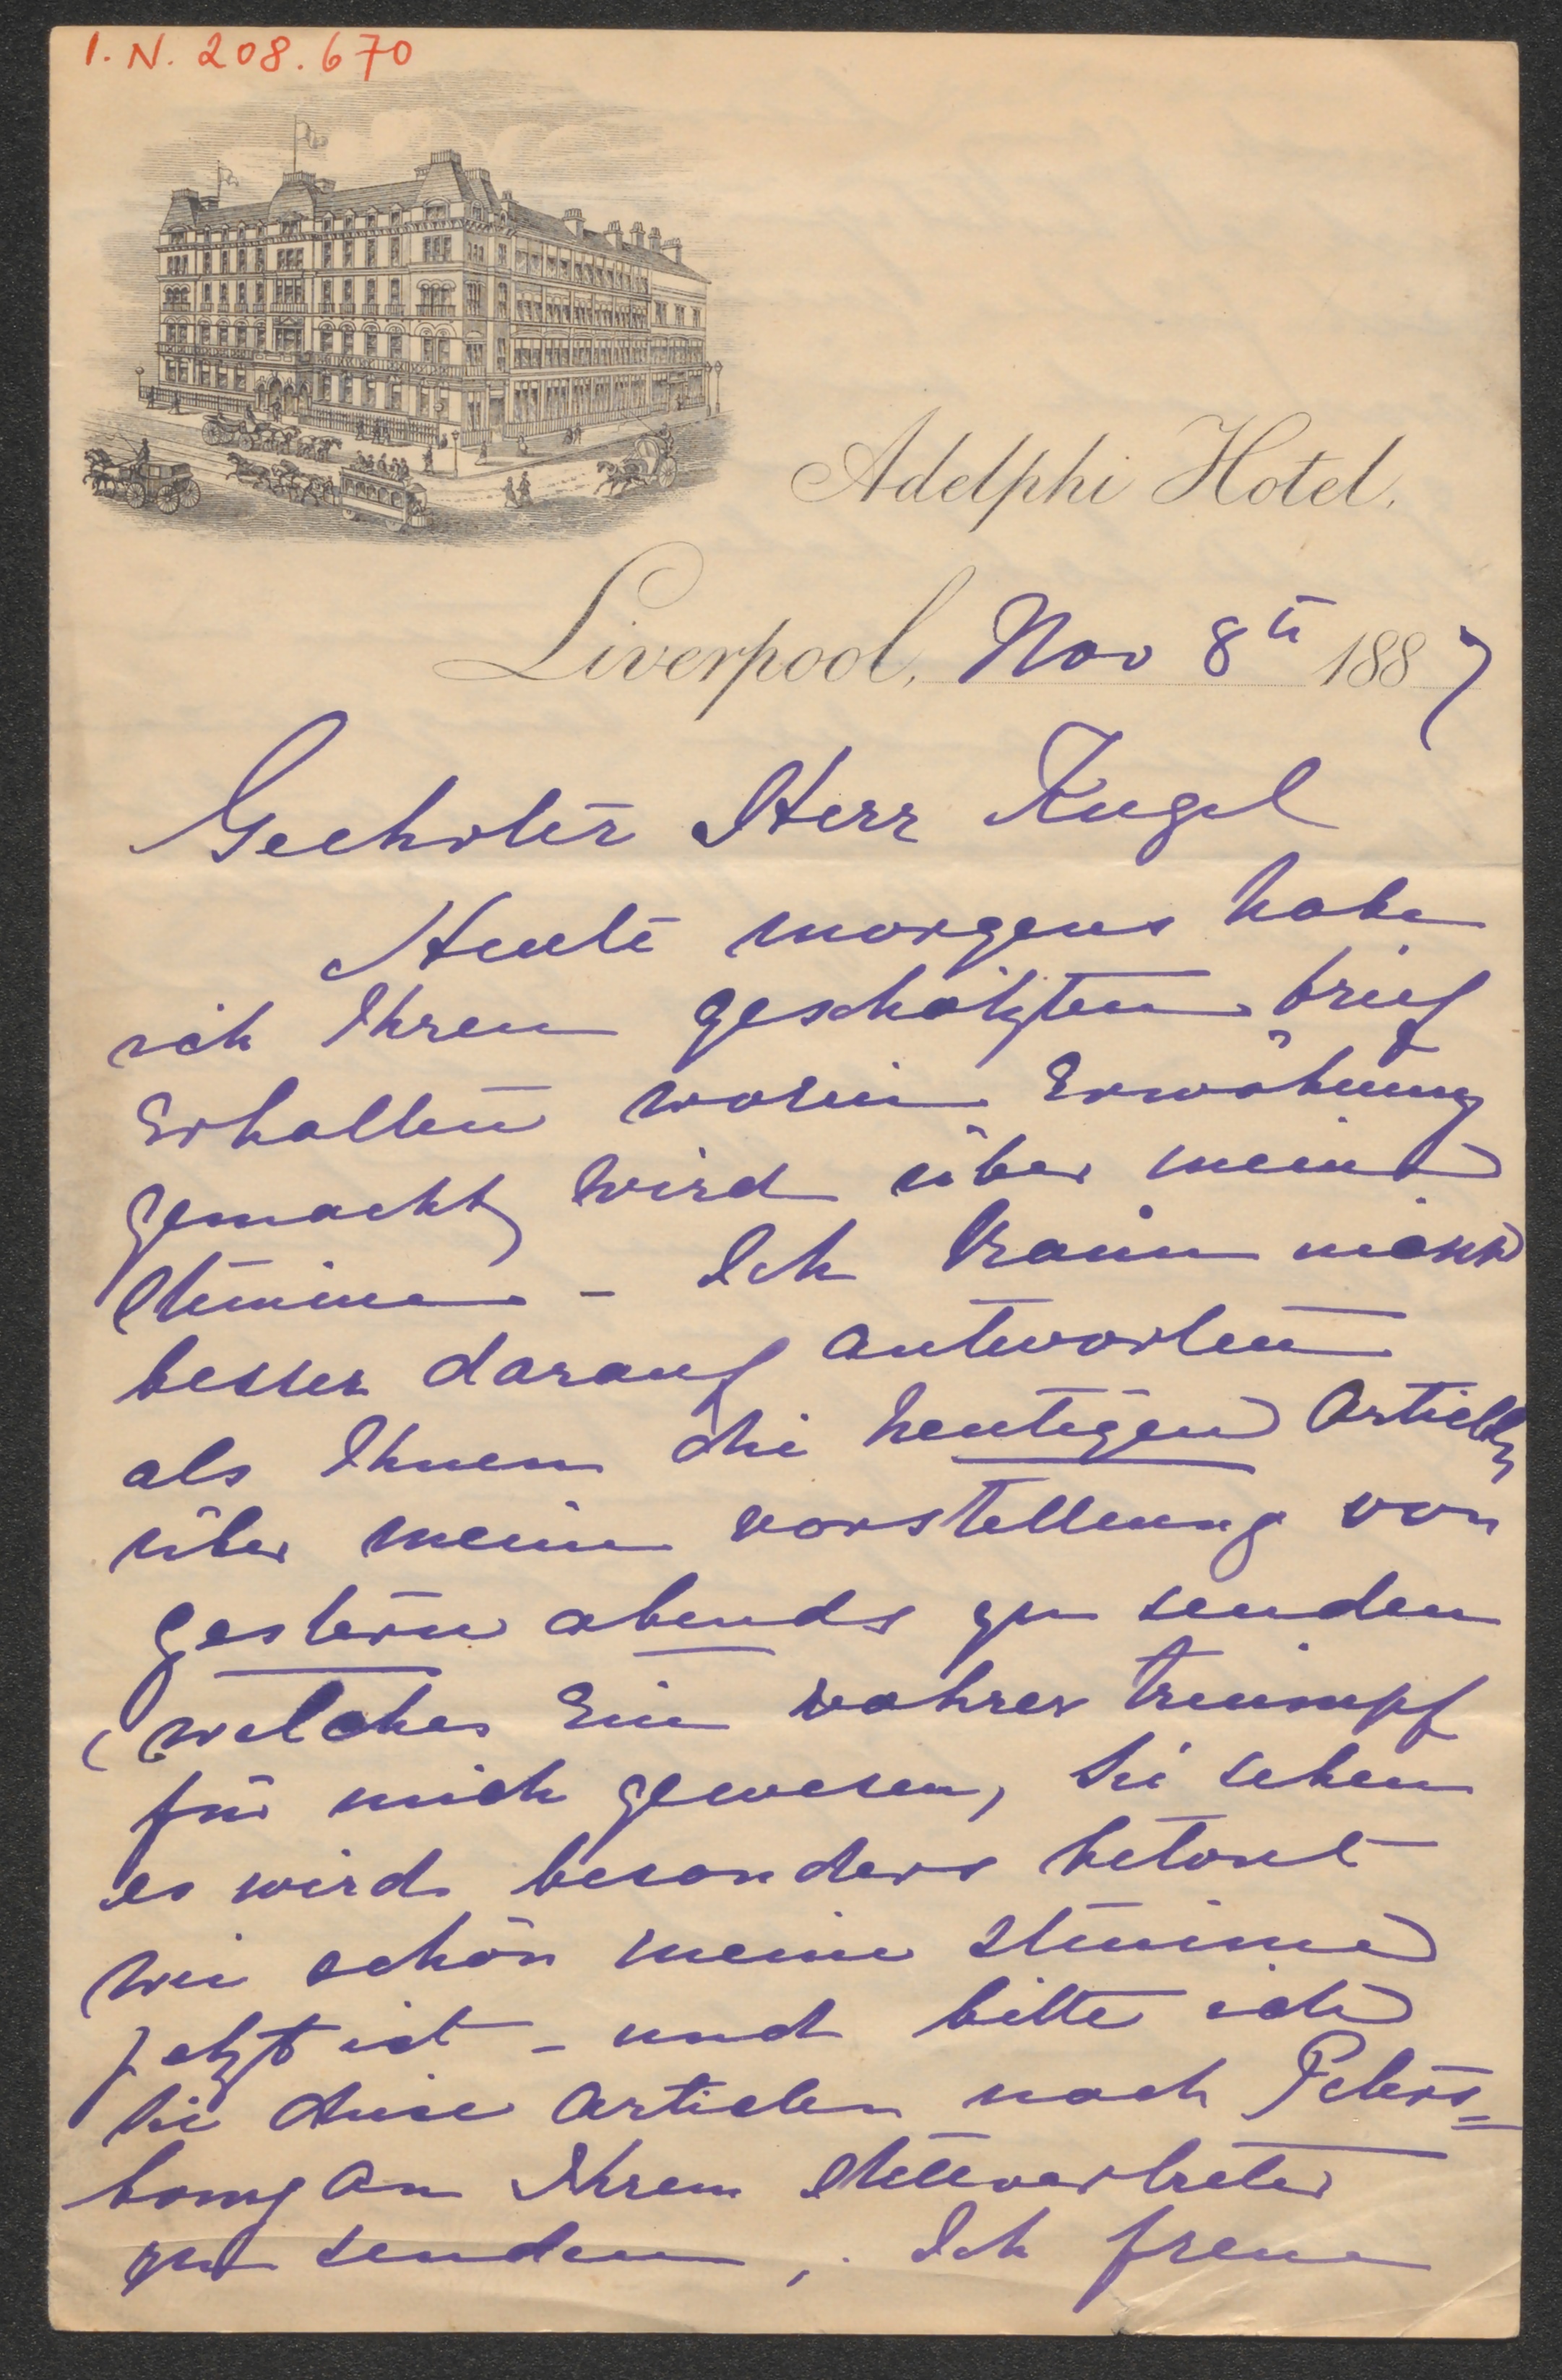 I. N. 208.670
Adelphi Hotel.
Liverpool, Nov 8th 1887
Geehrter Herr Kugel
Heute morgens habe
ich Ihren geschätzten brief
Erhalten worin Erwähnung
gemacht wird über meine
Stimme - Ich kann nicht
besser darauf antworten
als Ihnen die heutigen Artikeln
über meine vorstellung von
gestern abends zu senden
(welches Ein wahrer triumpf
für mich gewesen, Sie sehen
es wird besonders betont
wie schön meine Stimme
jetzt ist - und bitte ich
Sie diese Artikeln nach Peters=
bourg an Ihrem Stellvertreter
zu senden, . Ich freue